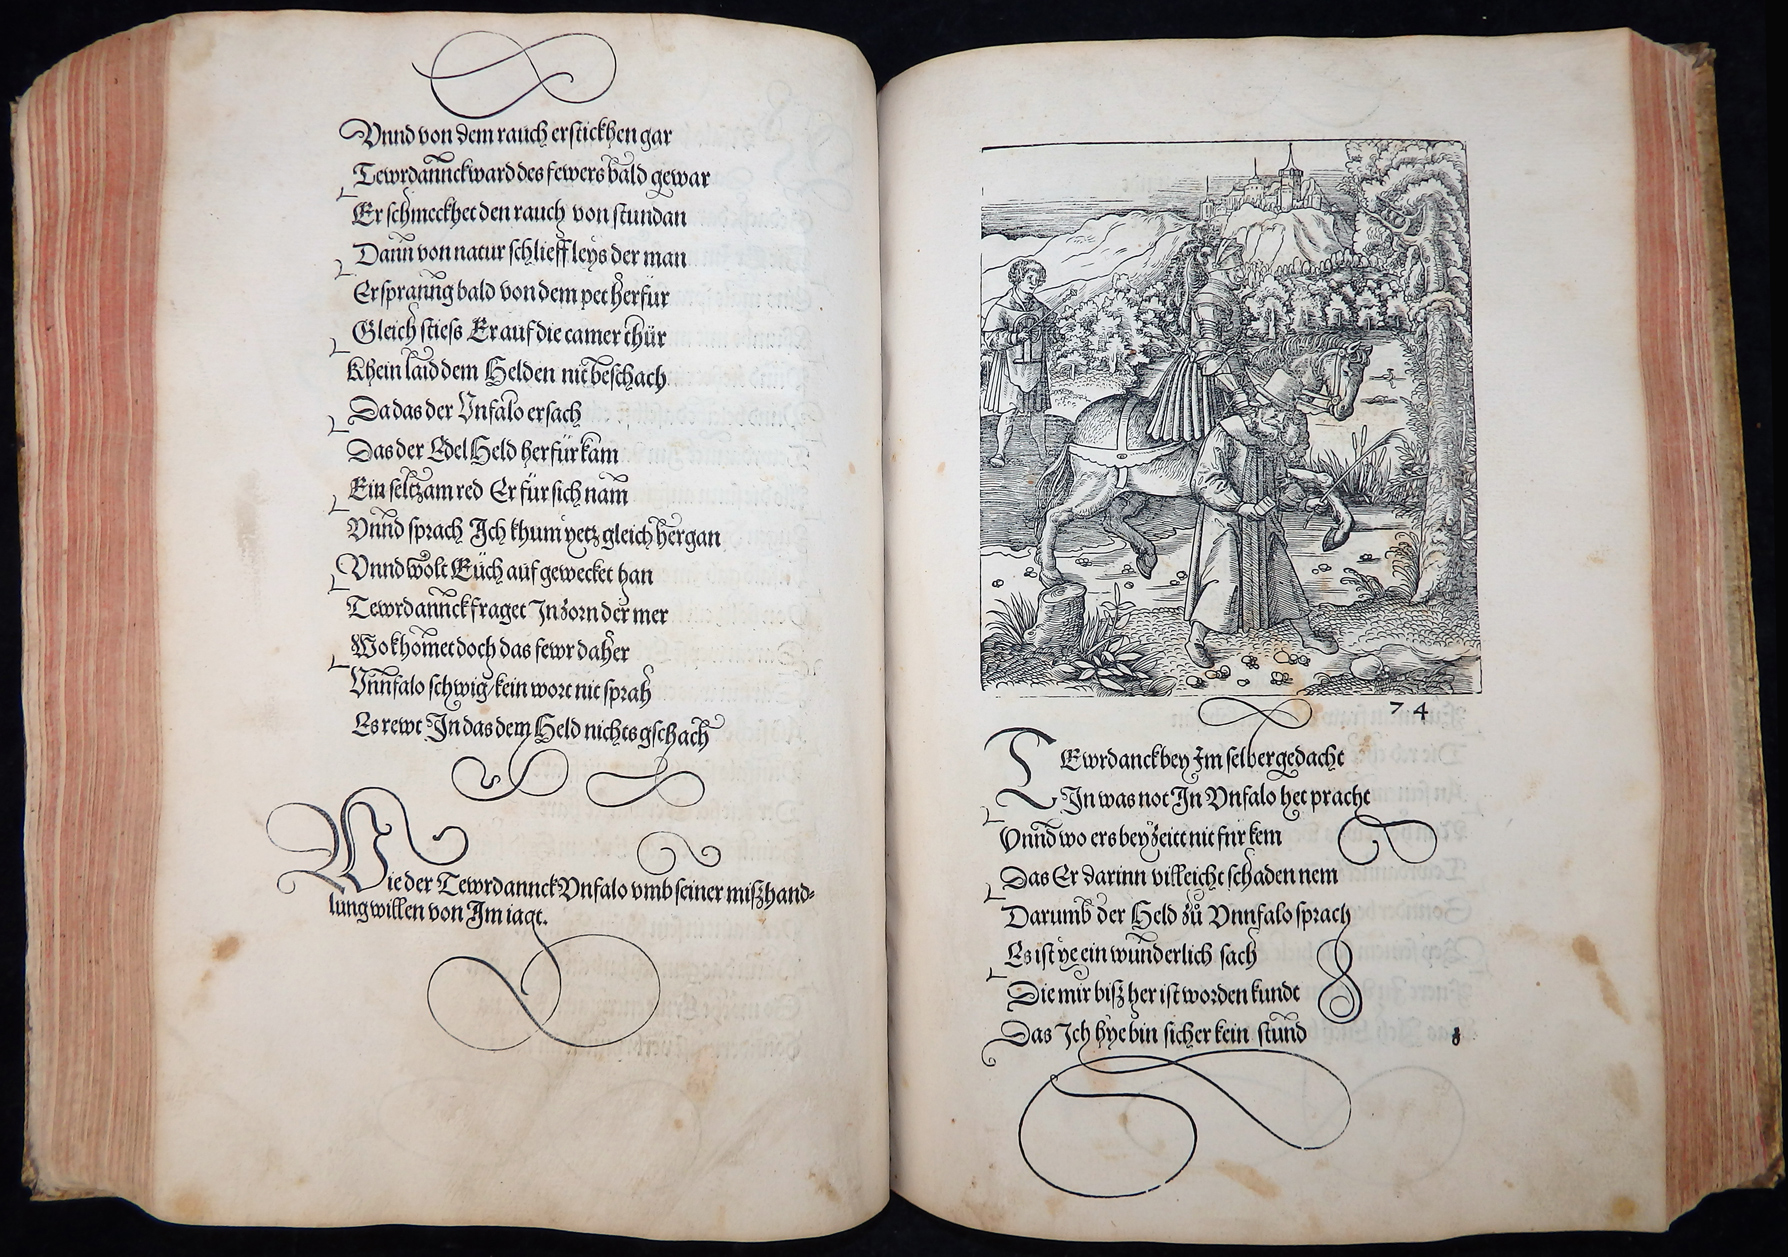 Vnnd von dem rauch erstickhen gar
Tewrdannck ward des fewers bald gewar
Er schmeckhet den rauch von stundan
Dann von natur schlieff leys der man
Er spranng bald von dem pet herfür
Gleich stiess Er auf die camer thür
Khein laid dem Helden nit beschach
Da das der Vnfalo ersach
Das der Edel Held herfür kam
Ein seltzam red Er für sich nam
Vnnd sprach Ich khum yetz gleich hergan
Vnnd wolt Eüch auf gewecket han
Tewrdannck fraget In zorn der mer
Wo khomet doch das fewr daher
Vnnfalo schwig/kein wort nit sprah
Es rewt In das dem Held nichts gschach
Wie der Tewrdannck Vnfalo vmb seiner miszhand-
lung willen von Im iagt.
74
TEwrdanck bey Im selber gedacht
In was not In Vnfalo het pracht
Vnnd wo ers bey zeitt nit für kem
Das Er darinn villeicht schaden nem
Darumb der Held zů Vnnfalo sprach
Es ist ye ein wunderlich sach
Die mir bisz her ist worden kundt
Das Ich hye bin sicher kein stund